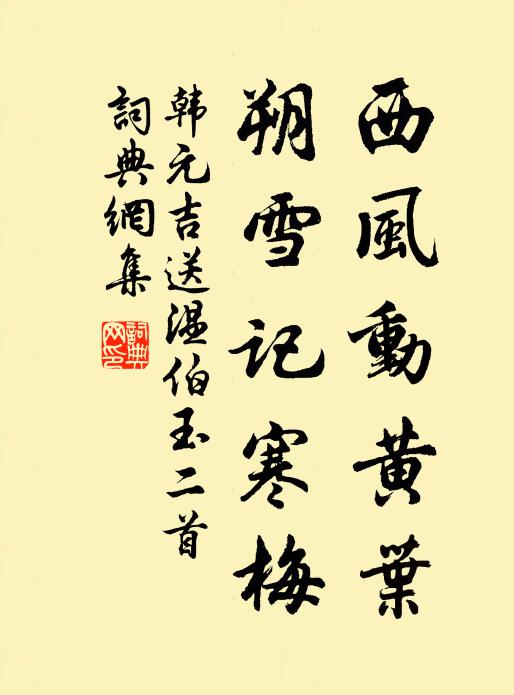 西風動黄葉
朔雪记寒梅
韩元吉送温伯玉二首
詞典網集
詞典
网印